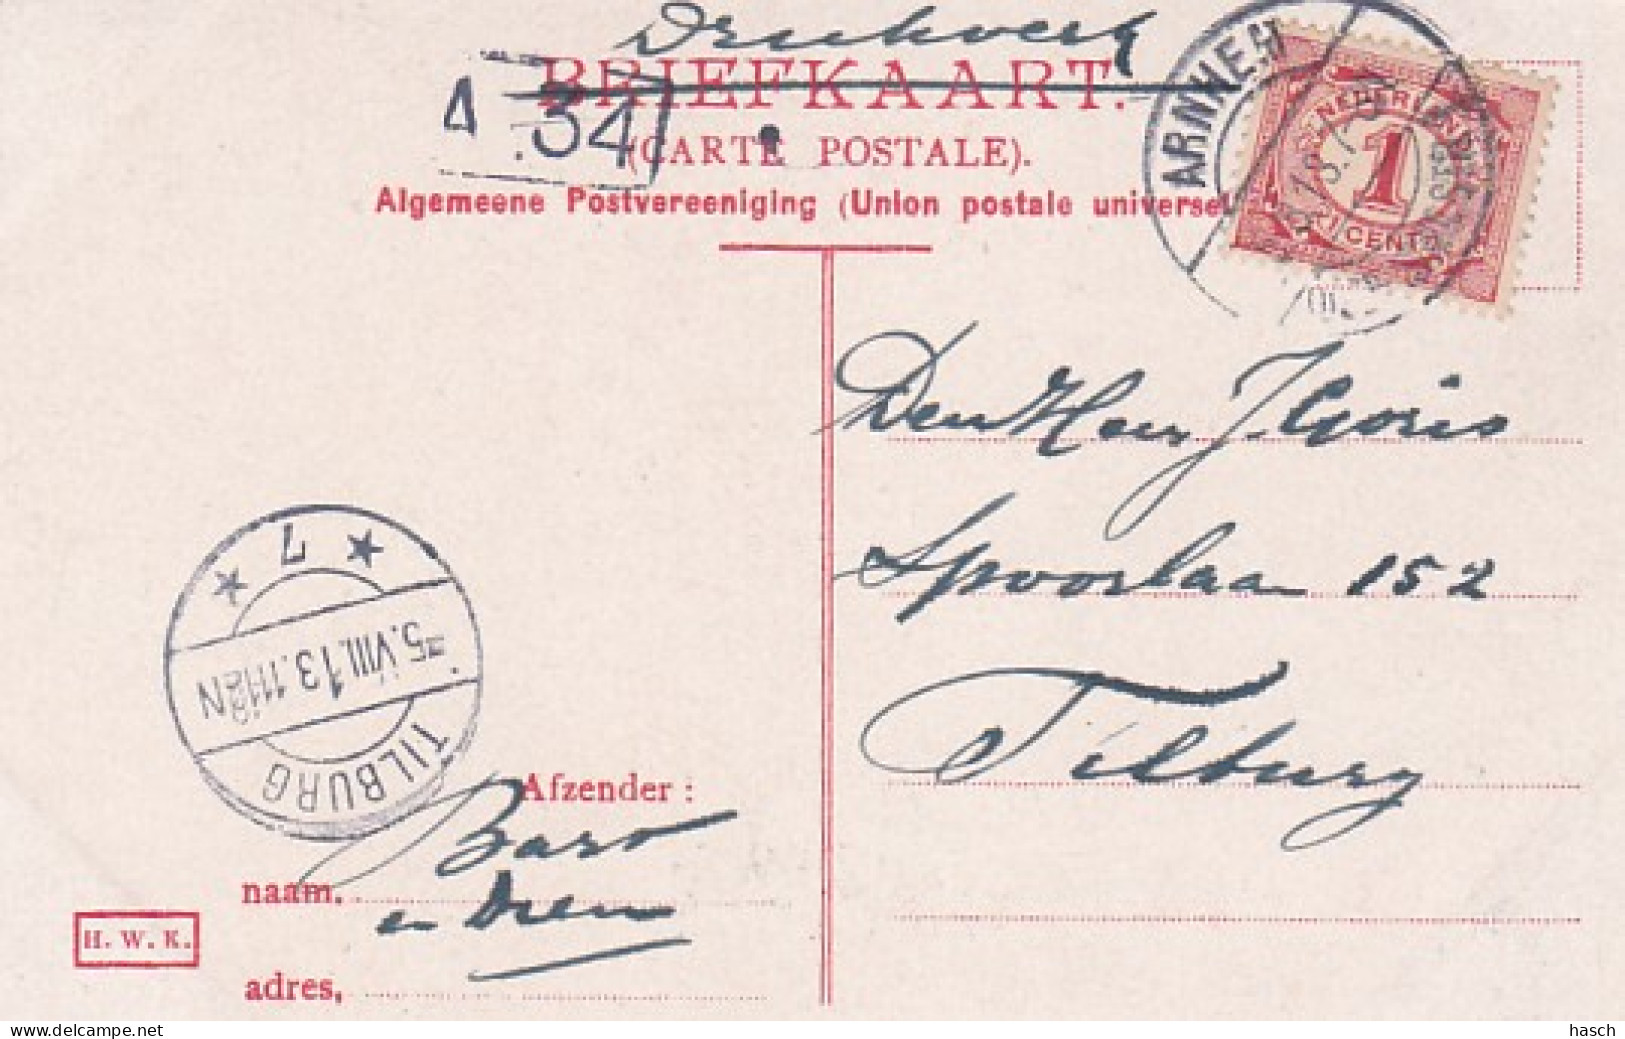 Drukwerk
BRIEFKAART.
(CARTE POSTALE).
34
Algemeene Postvereeniging (Union postale universel
ARNHEM
NEDERLAND
1
CENT
Den Heer J. Goris
Spoorlaan 152
Tilburg
7
5.VIII.13.11-12N
TILBURG
Afzender:
naam. Baro
en Dien
adres,
H. W. K.
hasch
www.delcampe.net